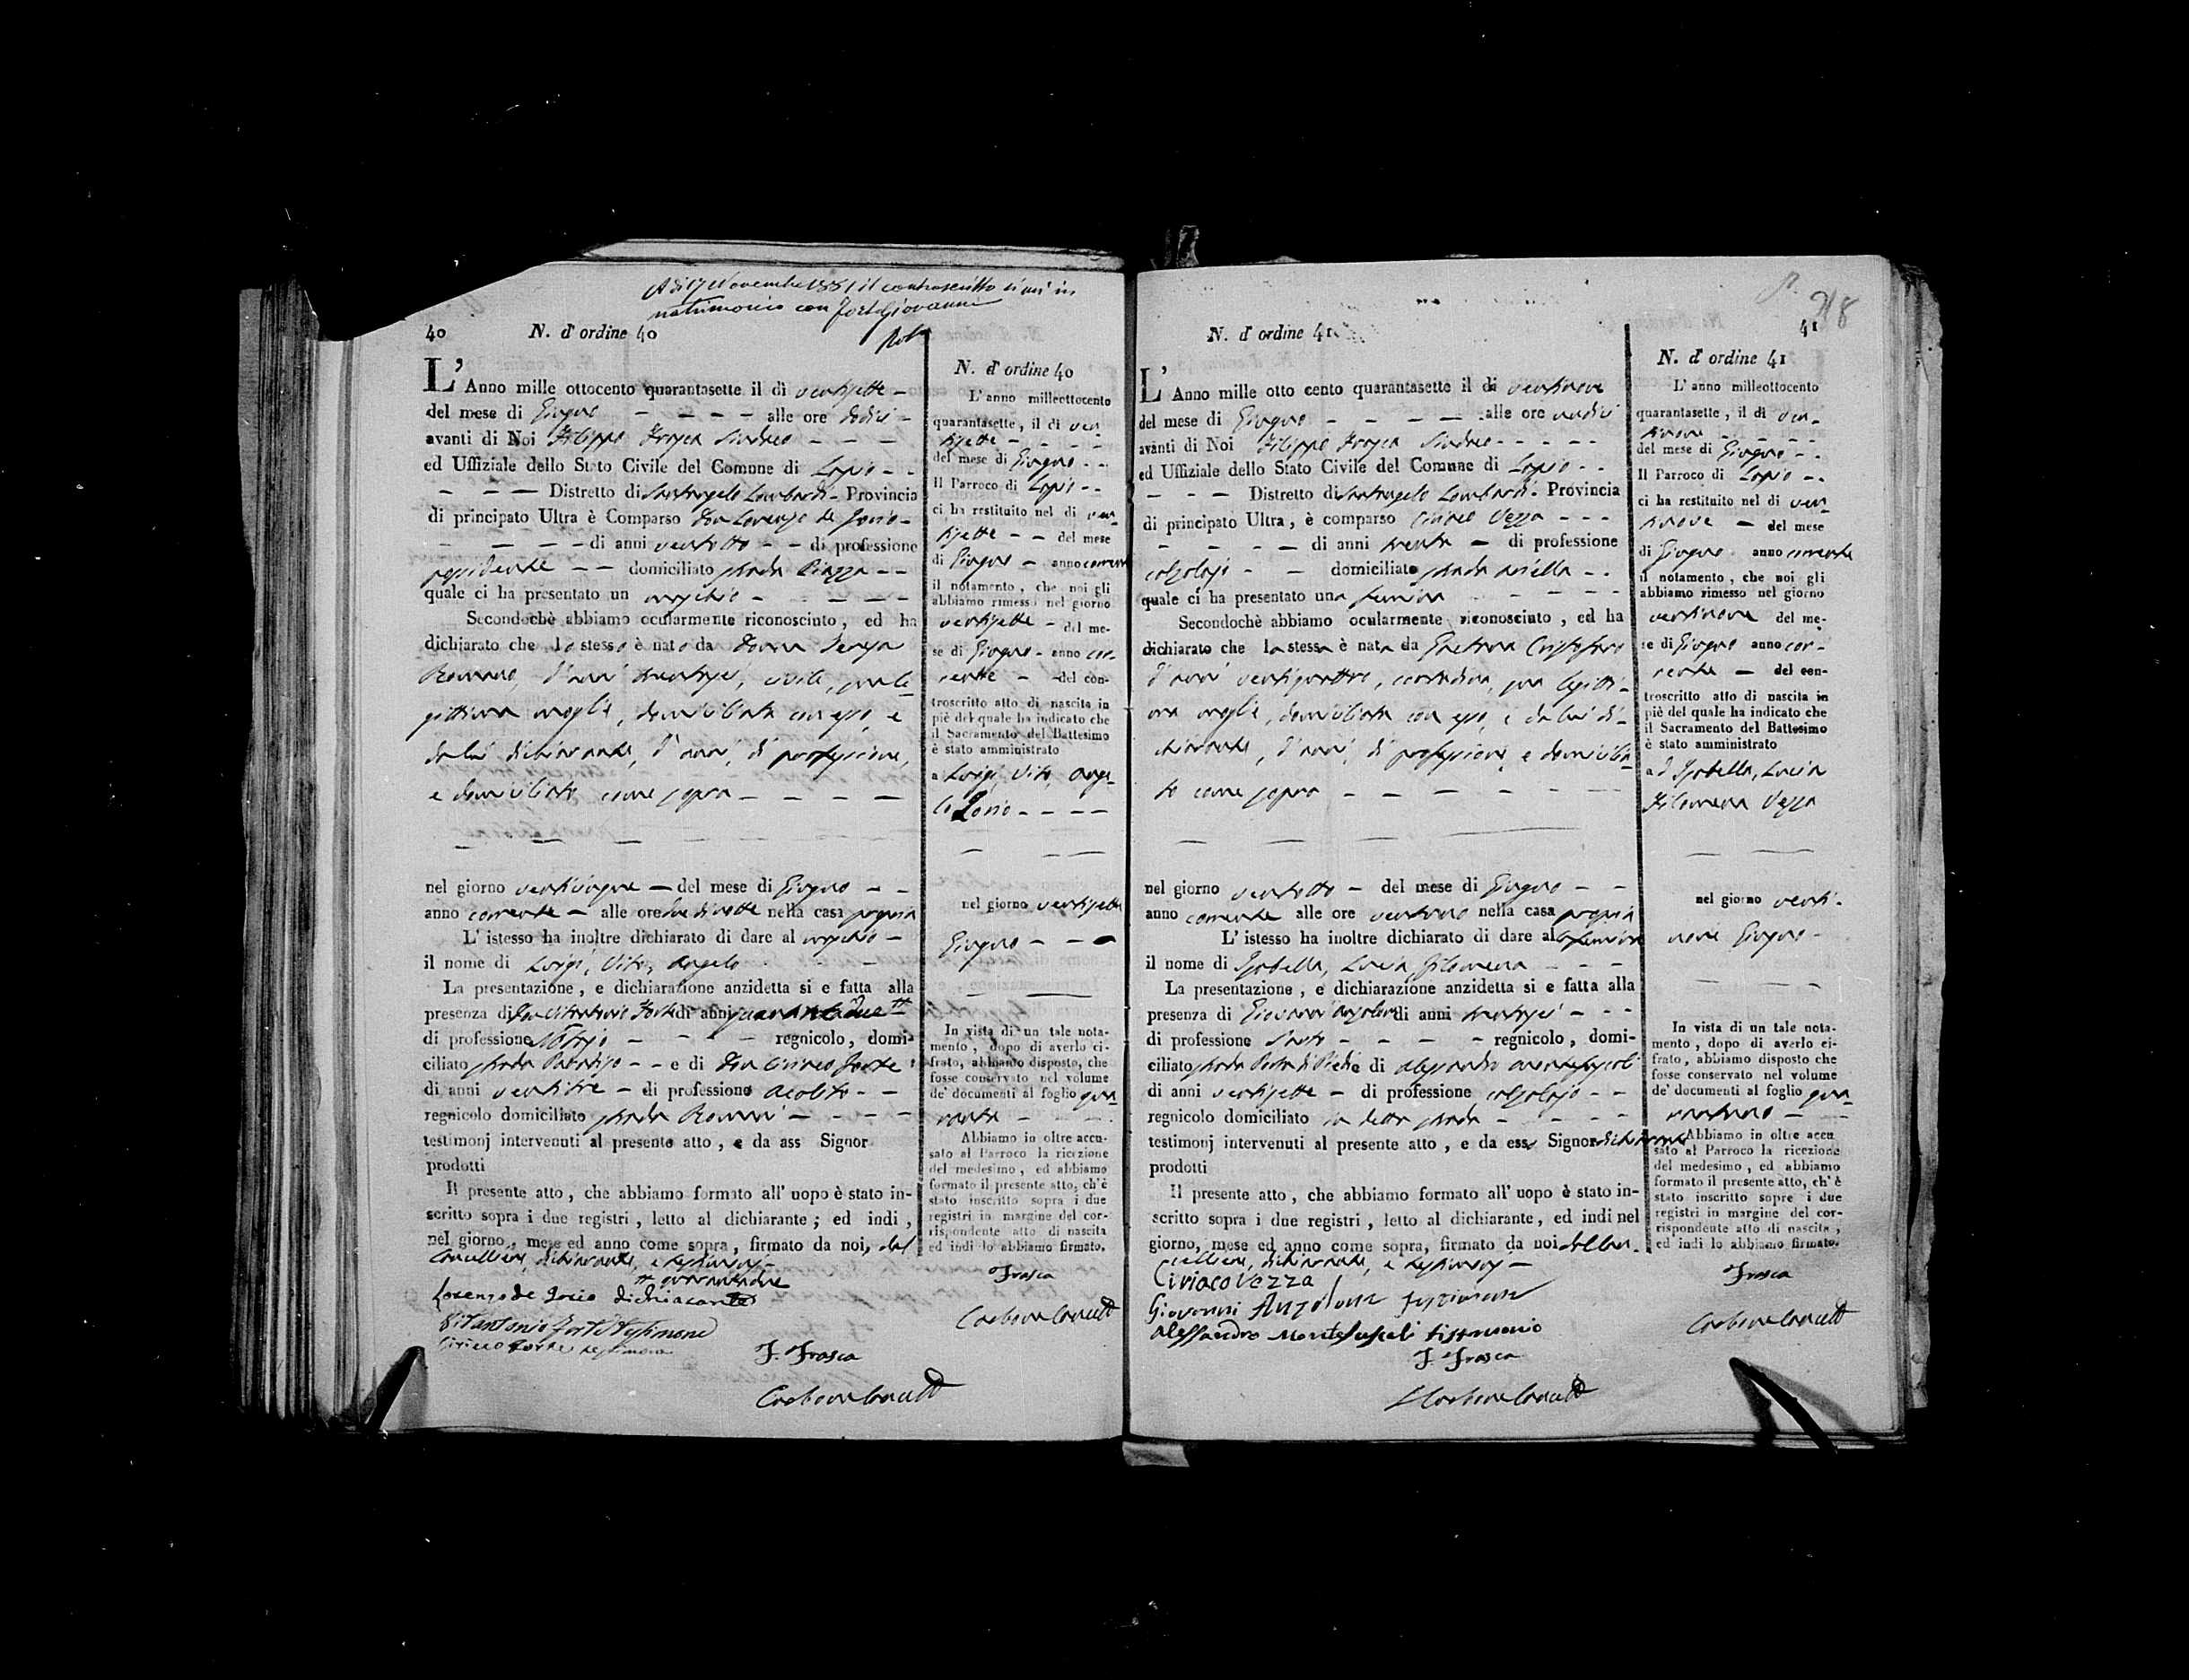 A dì 17 Novembre 1881 il controscritto si unì in
matrimonio con Forte Giovanni
40 N. d' ordine 40
L' Anno mille ottocento quarantasette il dì ventisette –
del mese di Giugno – – – – alle ore dodici –
avanti di Noi Filippo Frasca Sindaco – – –
ed Uffiziale dello Stato Civile del Comune di Lapio – –
– – – Distretto di Santangelo Lombardi – Provincia
di principato Ultra è Comparso Don Lorenzo de Iorio –
– – – – di anni ventotto – – di professione
possidente – – domiciliato strada Piazza – –
quale ci ha presentato un maschio – – – – –
Secondochè abbiamo ocularmente riconosciuto, ed ha
dichiarato che lo stesso è nato da Donna Teresa
Romano, d'anni trentasei, civile, sua le-
gittima moglie, domiciliata con esso e
da lui dichiarante, d'anni, di professione,
e domiciliato come sopra – – – –
nel giorno venticinque – del mese di Giugno – –
anno corrente – alle ore due di notte nella casa propria
L' istesso ha inoltre dichiarato di dare al maschio –
il nome di Luigi, Vito, Angelo
La presentazione, e dichiarazione anzidetta si e fatta alla
presenza di Don Vitantonio Forte di anni quarantadue
di professione – – – regnicolo, domi-
ciliato strada – – e di Don Ciriaco Forte
di anni ventitre – di professione Acolito – –
regnicolo domiciliato strada Romani – – – –
testimonj intervenuti al presente atto, e da ass Signor
prodotti
Il presente atto, che abbiamo formato all' uopo è stato in-
scritto sopra i due registri, letto al dichiarante; ed indi,
nel giorno, mese ed anno come sopra, firmato da noi, dal
Cancelliere, dichiarante, e testimonj –
quarantadue
Lorenzo de Iorio dichiarante
Vitantonio Forte Testimone
Ciriaco Forte testimone
F. Frasca
Carbone Cancell
N. d' ordine 40
L' anno milleottocento
quarantasette, il di ven-
tisette – – – –
del mese di Giugno – –
Il Parroco di Lapio – –
ci ha restituito nel di ven-
tisette – – del mese
di Giugno – anno corrente
il notamento, che noi gli
abbiamo rimesso nel giorno
ventisette – del me-
se di Giugno – anno cor-
rente – del con-
troscritto atto di nascita in
piè del quale ha indicato che
il Sacramento del Battesimo
è stato amministrato
a Luigi, Vito, Ange-
lo Iorio – – – –
nel giorno ventisette
Giugno – – –
In vista di un tale nota-
mento, dopo di averlo ci-
frato, abbiamo disposto, che
fosse conservato nel volume
de' documenti al foglio qua-
ranta – – –
Abbiamo in oltre accu-
sato al Parroco la ricezione
del medesimo, ed abbiamo
formato il presente atto, ch'è
stato inscritto sopra i due
registri in margine del cor-
rispondente atto di nascita
ed indi lo abbiamo firmato.
Frasca
Carbone Cancell
218
N. d' ordine 41 41
L' Anno mille otto cento quarantasette il dì ventinove
del mese di Giugno – – – – alle ore undici
avanti di Noi Filippo Frasca Sindaco – – – – –
ed Uffiziale dello Stato Civile del Comune di Lapio – –
– – – Distretto di Santangelo Lombardi – Provincia
di principato Ultra, è comparso Ciriaco Vezza – – –
– – – – di anni trenta – di professione
calzolajo – – domiciliato strada Ariella – –
quale ci ha presentato una femina – – – – –
Secondochè abbiamo ocularmente riconosciuto, ed ha
dichiarato che la stessa è nata da Gaetana Cristofaro
d'anni ventiquattro, contadina, sua legitti-
ma moglie, domiciliata con esso, e da lui di-
chiarante, d'anni, di professione e domicilia-
to come sopra – – – – – – –
nel giorno ventotto – del mese di Giugno – –
anno corrente alle ore ventuno nella casa propria
L' istesso ha inoltre dichiarato di dare alla femina
il nome di Isabella, Lucia, Filomena – – –
La presentazione, e dichiarazione anzidetta si e fatta alla
presenza di Giovanni Anzolone di anni trentasei – – –
di professione Sarto – – – – regnicolo, domi-
ciliato strada Posta di Piedi e di Alessandro Montefuscoli
di anni ventisette – di professione calzolajo – –
regnicolo domiciliato in detta strada – – – –
testimonj intervenuti al presente atto, e da esso Signor dichiarante
prodotti
Il presente atto, che abbiamo formato all' uopo è stato in-
scritto sopra i due registri, letto al dichiarante, ed indi nel
giorno, mese ed anno come sopra, firmato da noi dal Can-
celliere, dichiarante, e testimonj –
Ciriaco Vezza
Giovanni Anzolone testimone
Alessandro Montefuscoli tistimonio
F. Frasca
Carbone Cancell
N. d' ordine 41
L' anno milleottocento
quarantasette, il di ven-
tinove – – – –
del mese di Giugno – –
Il Parroco di Lapio – –
ci ha restituito nel di ven-
tinove – del mese
di Giugno anno corrente
il notamento, che noi gli
abbiamo rimesso nel giorno
ventinove del me-
se di Giugno anno cor-
rente – del con-
troscritto atto di nascita in
piè del quale ha indicato che
il Sacramento del Battesimo
è stato amministrato
ad Isabella, Lucia
Filomena Vezza
nel giorno venti-
nove Giugno –
In vista di un tale nota-
mento, dopo di averlo ci-
frato, abbiamo disposto che
fosse conservato nel volume
de' documenti al foglio qua-
rantuno – –
Abbiamo in oltre accu
sato al Parroco la ricezione
del medesimo, ed abbiamo
formato il presente atto, ch'è
stato inscritto sopre i due
registri in margine del cor-
rispondente atto di nascita,
ed indi lo abbiamo firmato.
Frasca
Carbone Cancell